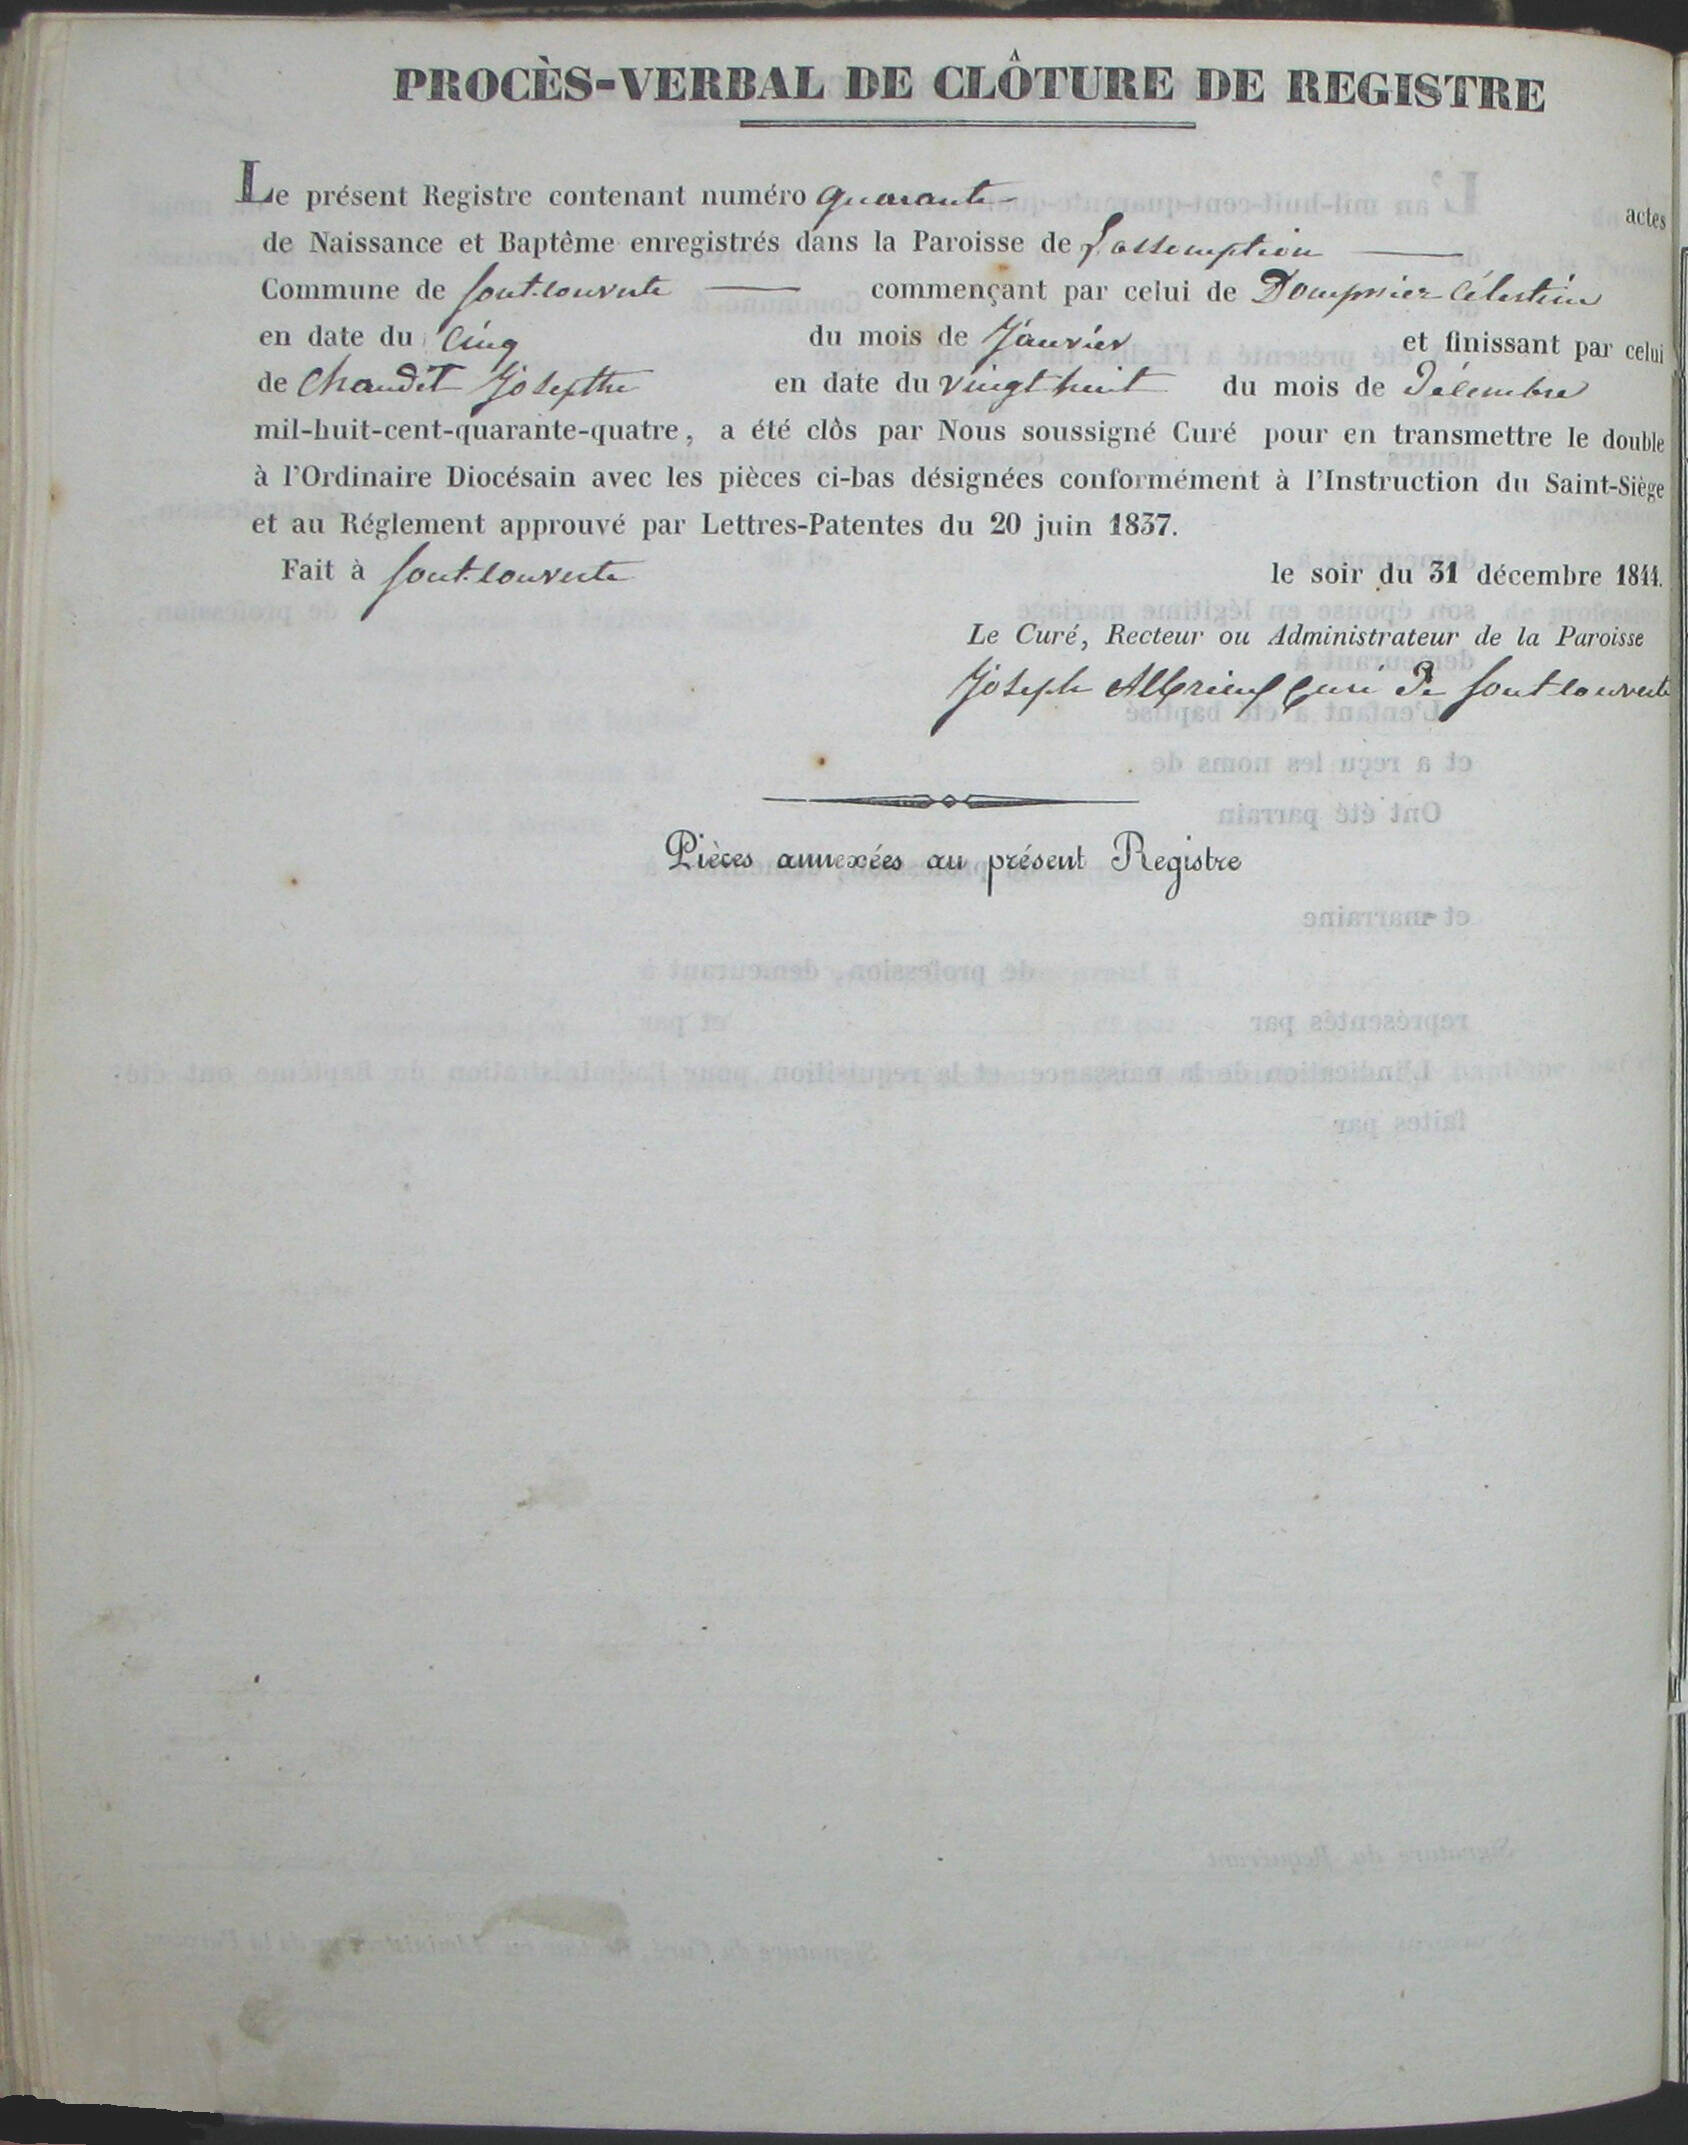 PROCÈS-VERBAL DE CLÔTURE DE REGISTRE
Le présent Registre contenant numéro quarante actes
de Naissance et Baptême enregistrés dans la Paroisse de L'assomption
Commune de font-couverte commençant par celui de Dompnier Célestin
en date du Cinq du mois de Janvier et finissant par celui
de Chaudet Josephte en date du vingt huit du mois de Décembre
mil-huit-cent-quarante-quatre, a été clôs par Nous soussigné Curé pour en transmettre le double
à l'Ordinaire Diocésain avec les pièces ci-bas désignées conformément à l'Instruction du Saint-Siège
et au Réglement approuvé par Lettres-Patentes du 20 juin 1837.
Fait à font-couverte le soir du 31 décembre 1844.
Le Curé, Recteur ou Administrateur de la Paroisse
Joseph Albrieux Curé De fontcouverte
Pièces annexées au présent Registre